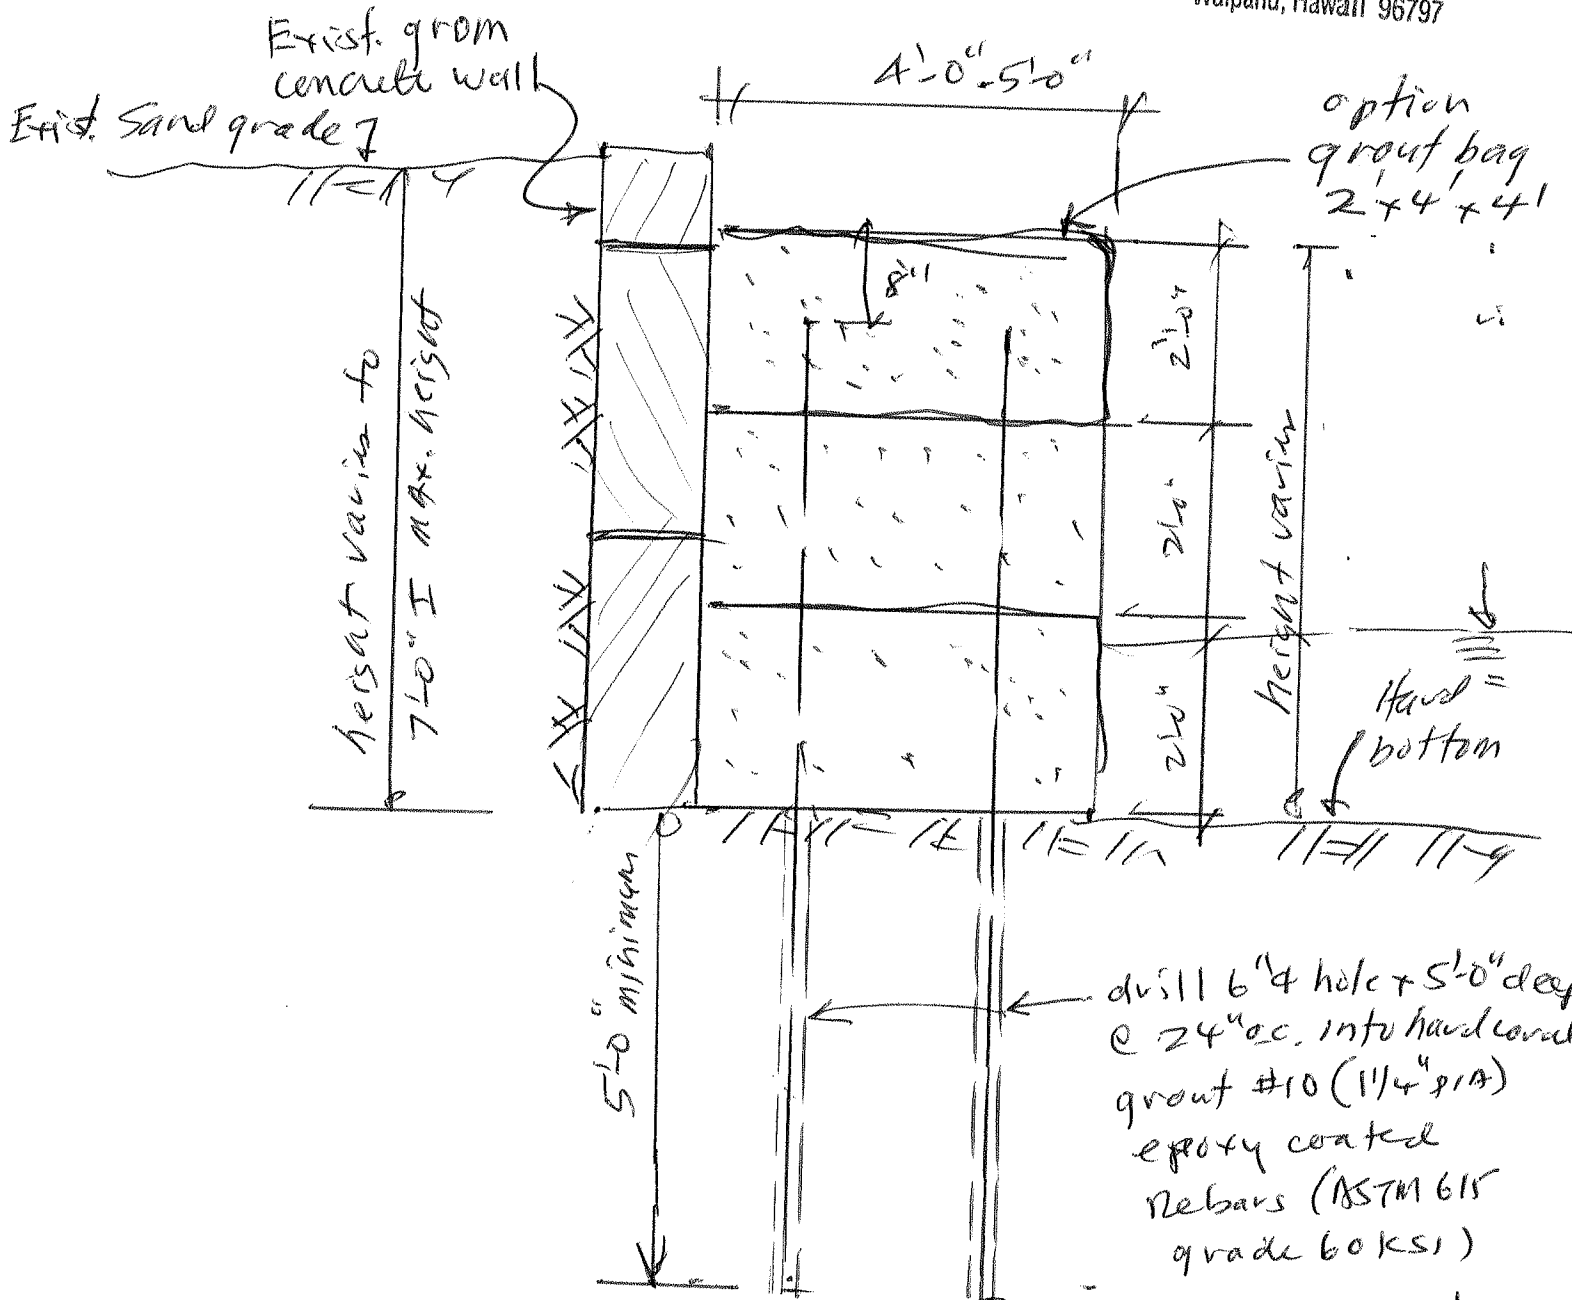 Waipahu, Hawaii 96797
Exist. grom
concrete wall
Exist. Sand grade
4'-0"-5'-0"
option
grout bag
2'x4'x4'
8"
2'-0"
2'-0"
2'-0"
height varies
height varies to
7'-0" ± max. height
Hard
bottom
5'-0" minimum
drill 6"φ hole x 5'-0" deep
@ 24" o.c. into hard coral
grout #10 (1 1/4" DIA)
epoxy coated
Rebars (ASTM 615
grade 60 KSI)